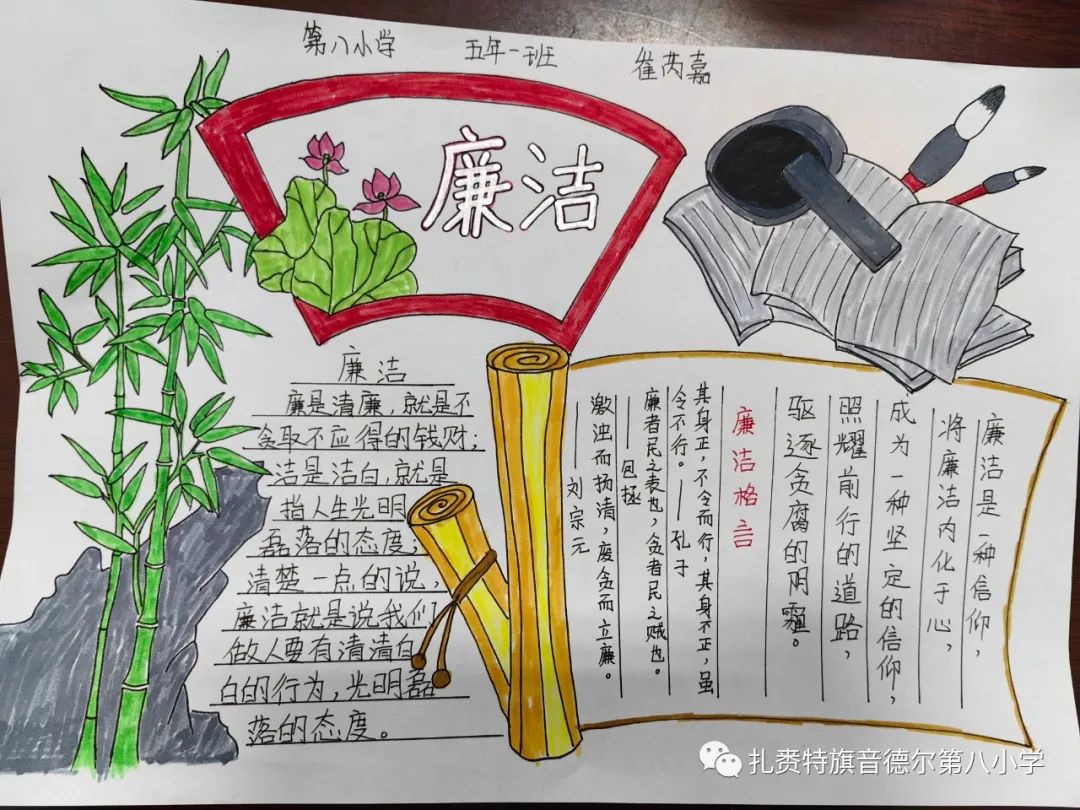 第八小学 五年一班 崔芮嘉
廉洁
廉洁
廉是清廉，就是不
贪取不应得的钱财；
洁是洁白，就是
指人生光明
磊落的态度，
清楚一点的说，
廉洁就是说我们
做人要有清清白
白的行为，光明磊
落的态度。
廉洁是一种信仰，
将廉洁内化于心，
成为一种坚定的信仰，
照耀前行的道路，
驱逐贪腐的阴霾。
廉洁格言
其身正，不令而行，其身不正，虽
令不行。——孔子
廉者民之表也，贪者民之贼也。
——包拯
激浊而扬清，废贪而立廉。
——刘宗元
扎赉特旗音德尔第八小学